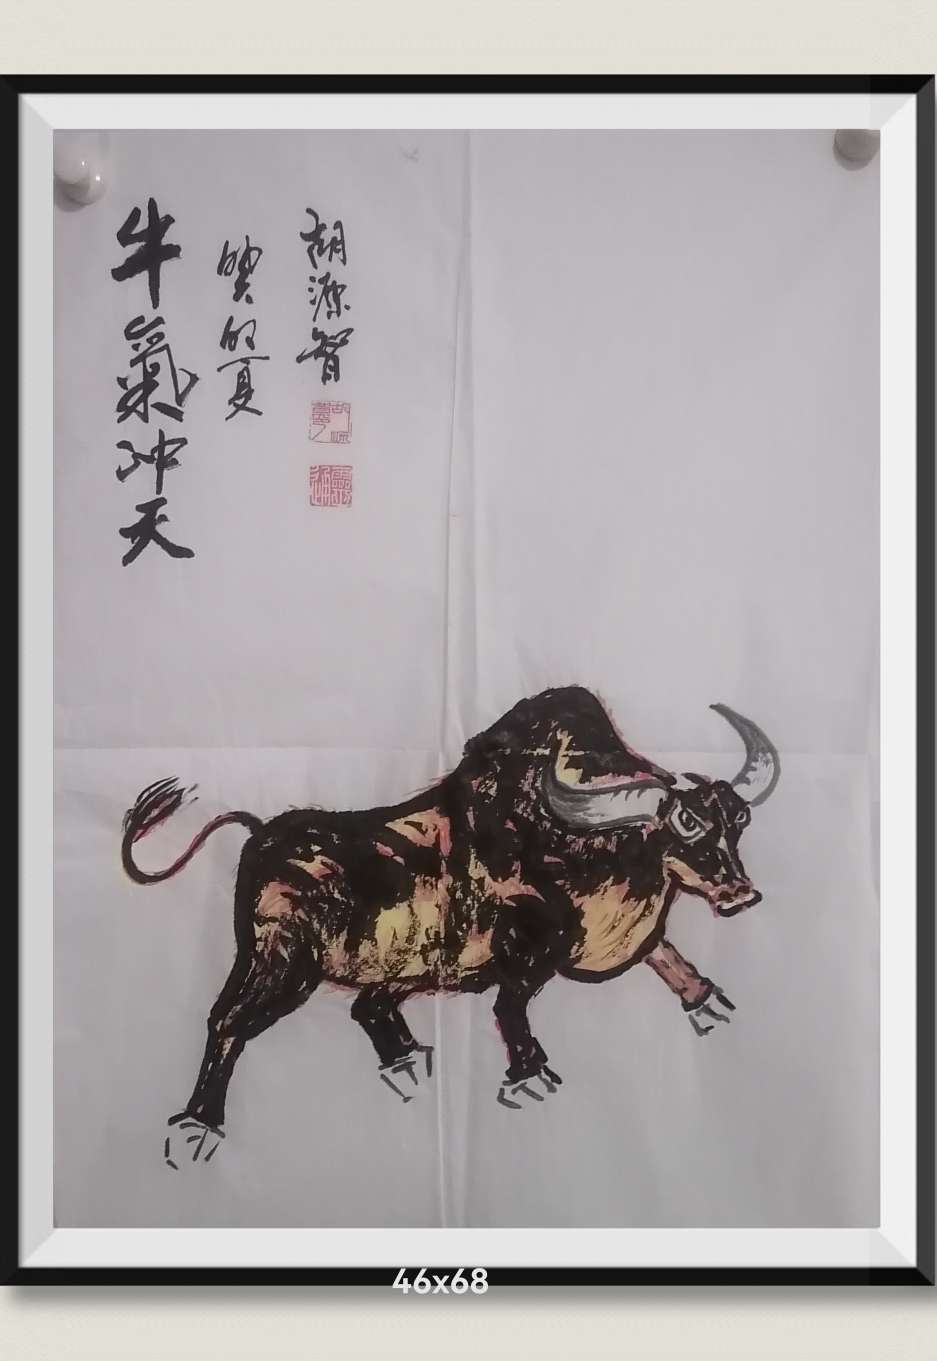 牛氣冲天
卯夏
胡源智
46x68